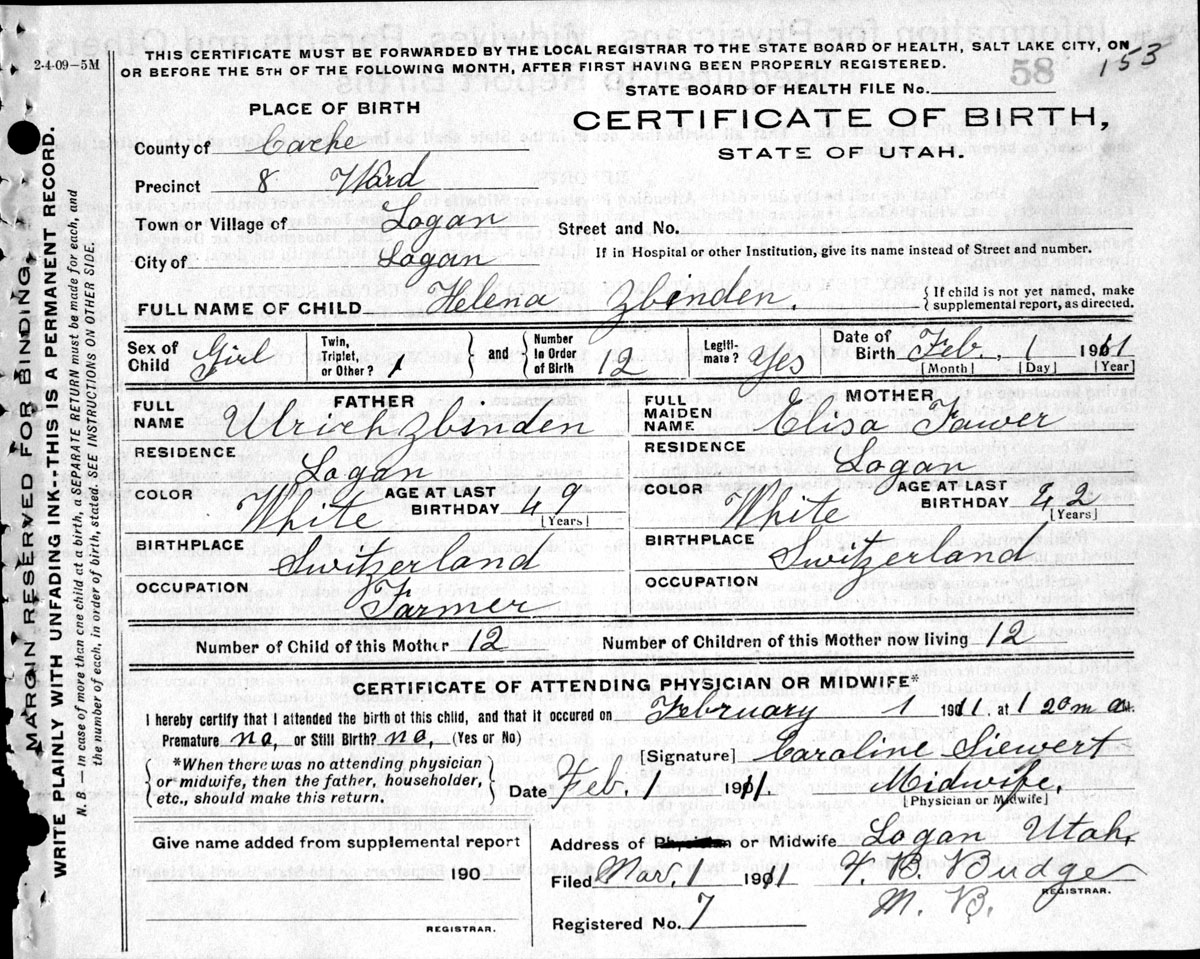 THIS CERTIFICATE MUST BE FORWARDED BY THE LOCAL REGISTRAR TO THE STATE BOARD OF HEALTH, SALT LAKE CITY, ON
2-4-09-5M
OR BEFORE THE 5TH OF THE FOLLOWING MONTH, AFTER FIRST HAVING BEEN PROPERLY REGISTERED.
58
153
STATE BOARD OF HEALTH FILE No.
PLACE OF BIRTH
CERTIFICATE OF BIRTH,
STATE OF UTAH.
County of Cache
Precinct 8 Ward
Town or Village of Logan
Street and No.
City of Logan
If in Hospital or other Institution, give its name instead of Street and number.
FULL NAME OF CHILD Helena Zbinden.
{ If child is not yet named, make
supplemental report, as directed.
Sex of Child Girl
Twin, Triplet, or Other? 1
and
Number In Order of Birth 12
Legiti-mate? Yes
Date of Birth Feb., 1 1911
[Month] [Day] [Year]
FATHER
FULL NAME Ulrich Zbinden
RESIDENCE Logan
COLOR White
AGE AT LAST BIRTHDAY 49
[Years]
BIRTHPLACE Switzerland
OCCUPATION Farmer
MOTHER
FULL MAIDEN NAME Elisa Fawer
RESIDENCE Logan
COLOR White
AGE AT LAST BIRTHDAY 42
[Years]
BIRTHPLACE Switzerland
OCCUPATION
Number of Child of this Mother 12
Number of Children of this Mother now living 12
CERTIFICATE OF ATTENDING PHYSICIAN OR MIDWIFE*
I hereby certify that I attended the birth of this child, and that it occured on February 1 1911. at 1 20 m a M.
Premature no, or Still Birth? no, (Yes or No)
[Signature] Caroline Siewert
{ *When there was no attending physician
or midwife, then the father, householder,
etc., should make this return. }
Date Feb. 1 1911
Midwife.
[Physician or Midwife]
Give name added from supplemental report
190
REGISTRAR.
Address of Physician or Midwife Logan Utah,
Filed Mar. 1 1911 T. B. Budge
REGISTRAR.
M. B.
Registered No. 7
MARGIN RESERVED FOR BINDING
WRITE PLAINLY WITH UNFADING INK--THIS IS A PERMANENT RECORD.
N. B.—in case of more than one child at a birth, a SEPARATE RETURN must be made for each, and
the number of each, in order of birth, stated. SEE INSTRUCTIONS ON OTHER SIDE.